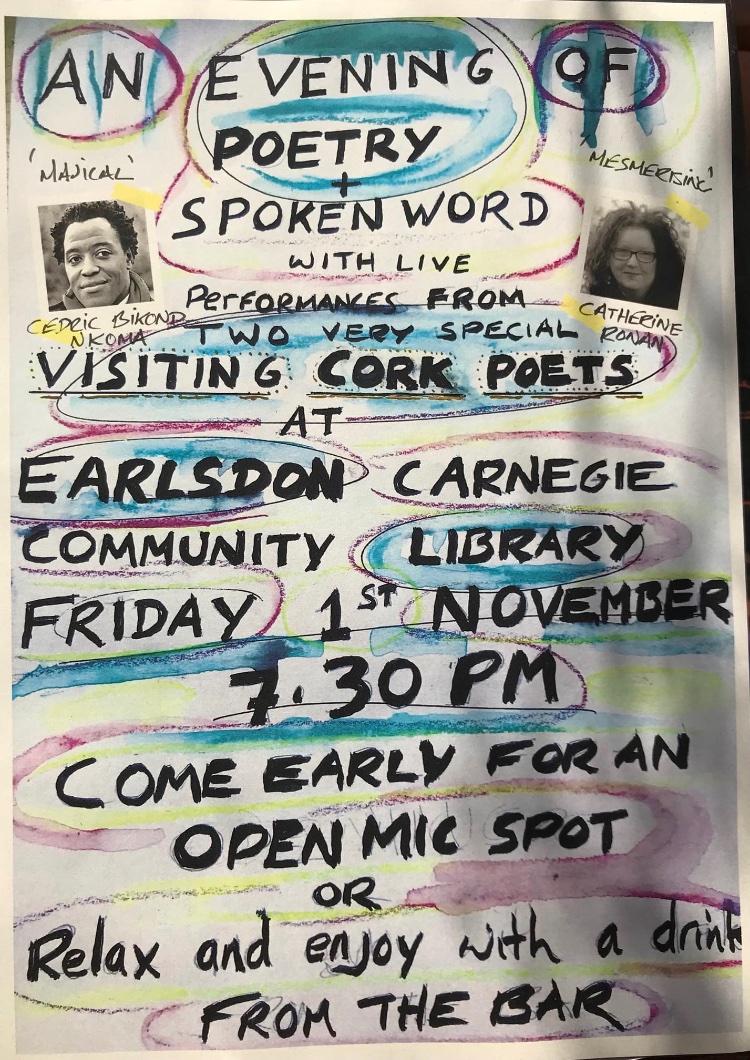 AN EVENING OF
POETRY
+
'MAJICAL'
'MESMERISING'
SPOKEN WORD
WITH LIVE
PERFORMANCES FROM
CEDRIC BIKOND
NKOMA
CATHERINE
RONAN
TWO VERY SPECIAL
VISITING CORK POETS
AT
EARLSDON CARNEGIE
COMMUNITY LIBRARY
FRIDAY 1ST NOVEMBER
7.30 PM
COME EARLY FOR AN
OPEN MIC SPOT
OR
Relax and enjoy with a drink
FROM THE BAR